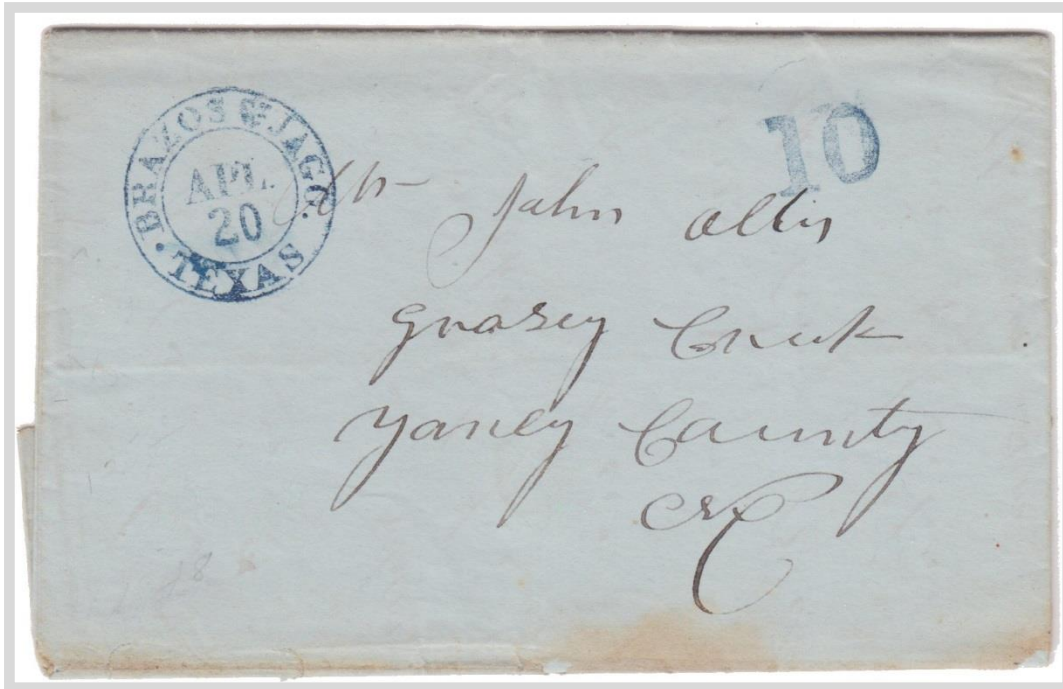 BRAZOS St JAGO.
APL.
20
TEXAS
10
Mr John Allis
Grasey Creek
Yancy County
NC